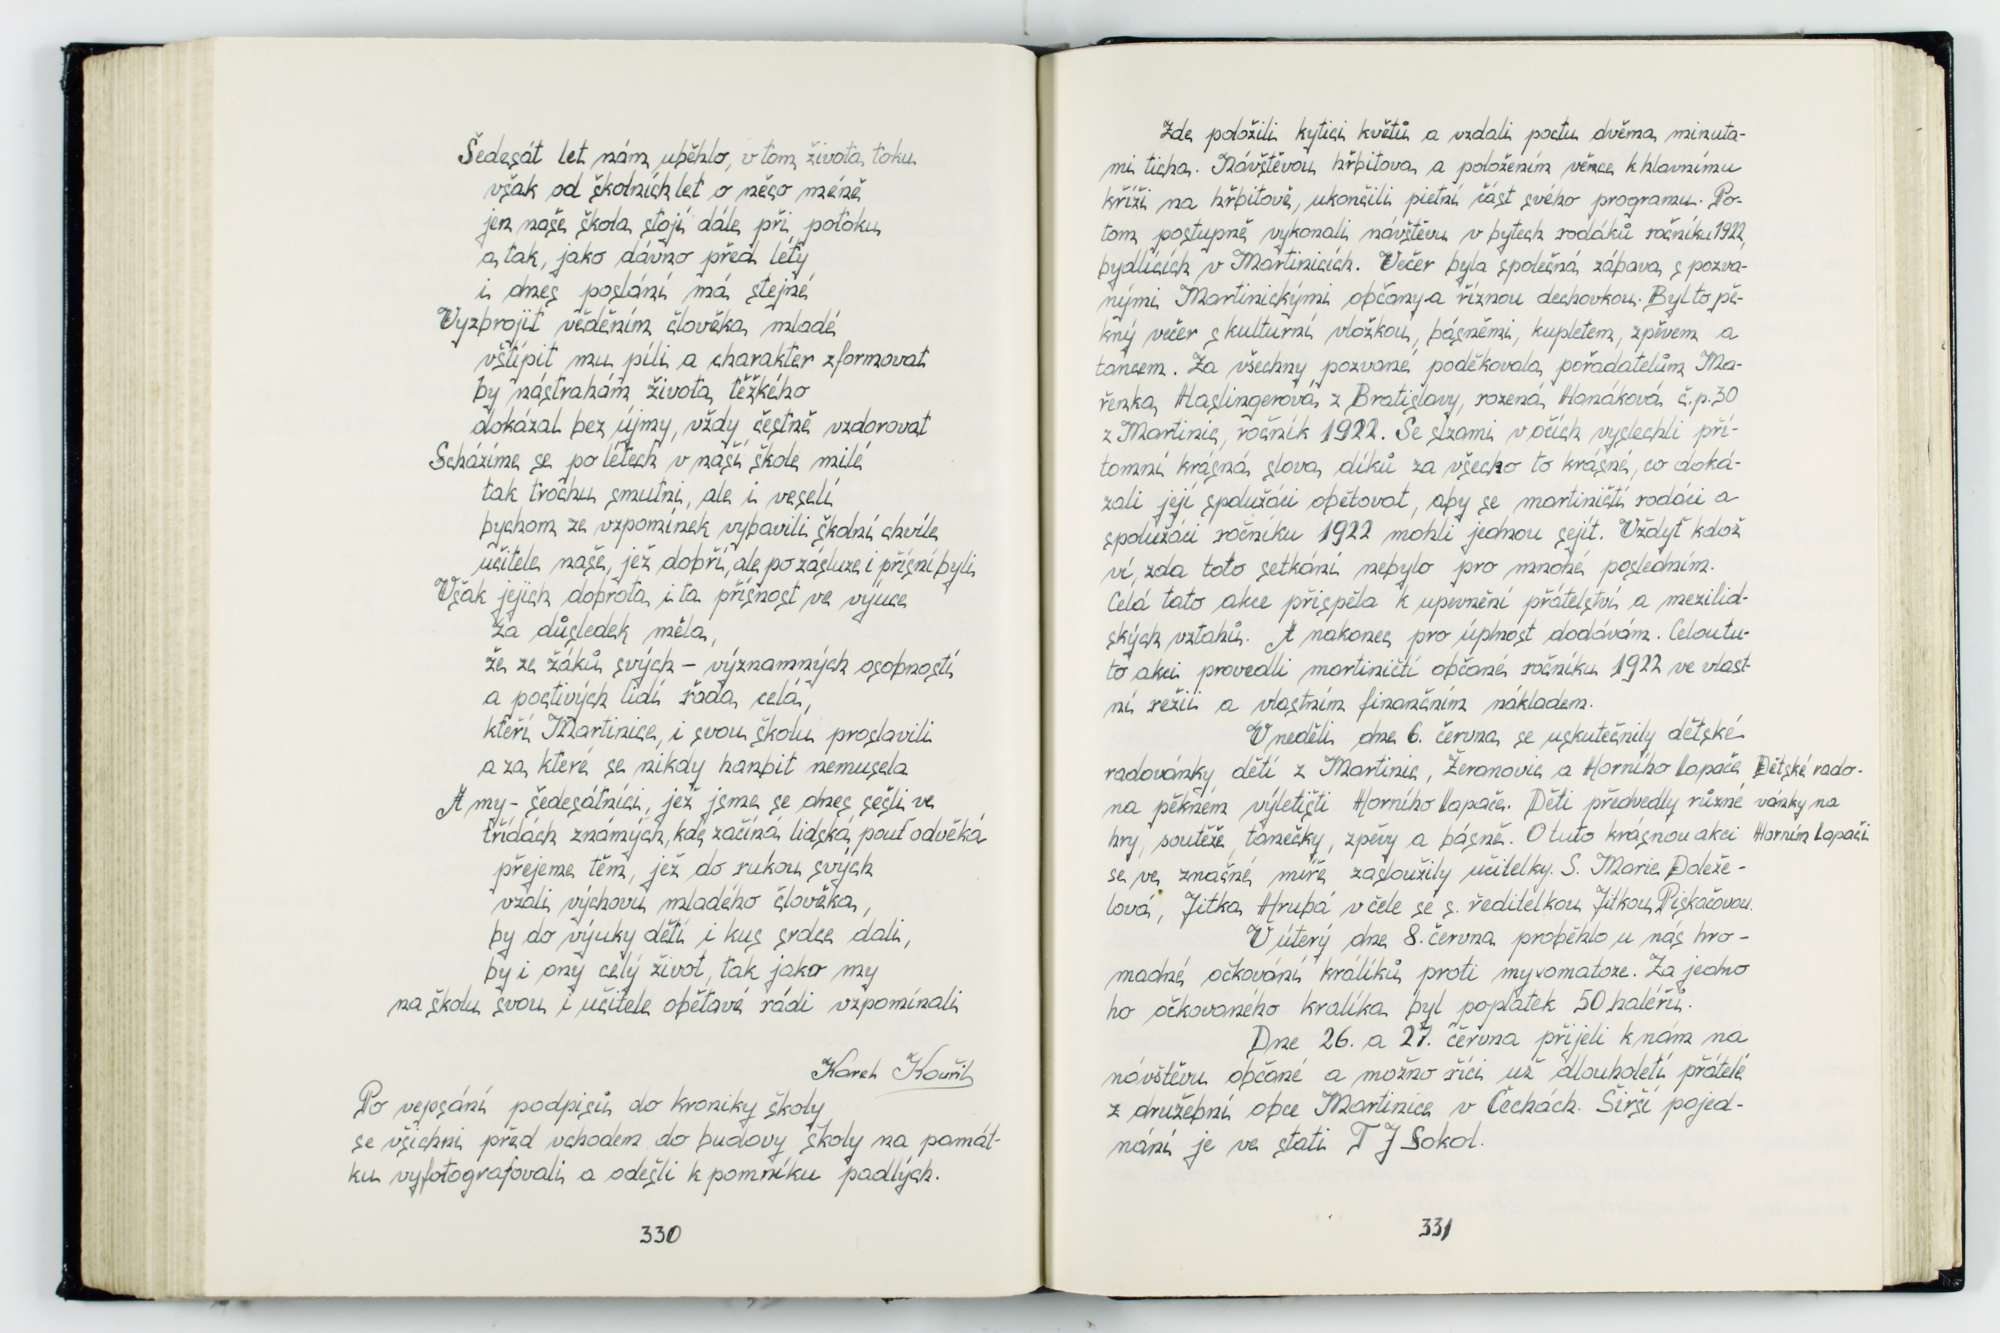 Šedesát let nám uběhlo, v tom života toku
však od školních let o něco méně
jen naše škola stojí dále při potoku
a tak, jako dávno před léty
i dnes poslání má stejné
Vyzbrojit věděním člověka mladé
vštípit mu píli a charakter zformovat
by nástrahám života těžkého
dokázal bez újmy, vždy čestně vzdorovat
Scházíme se po létech v naší škole milé
tak trochu smutni, ale i veselí
bychom ze vzpomínek vybavili školní chvíle
učitele naše, jež dobří, ale po zásluze i přísní byli
Však jejich dobrota i ta přísnost ve výuce
za důsledek měla,
že ze žáků svých – významných osobností
a poctivých lidí řada celá,
kteří Martinice, i svou školu proslavili
a za které se nikdy hanbit nemusela
A my – šedesátníci, jež jsme se dnes sešli ve
třídách známých, kde začíná lidská pouť odvěká
přejeme těm, jež do rukou svých
vzali výchovu mladého člověka,
by do výuky dětí i kus srdce dali,
by i oni celý život, tak jako my
na školu svou i učitele obětavé rádi vzpomínali
Karel Kouřil
Po vepsání podpisů do kroniky školy
se všichni před vchodem do budovy školy na památ-
ku vyfotografovali a odešli k pomníku padlých.
330
Zde položili kytici květů a vzdali poctu dvěma minuta-
mi ticha. Návštěvou hřbitova a položením věnce k hlavnímu
kříži na hřbitově, ukončili pietní část svého programu. Po-
tom postupně vykonali návštěvu v bytech rodáků ročníku 1922,
bydlících v Martinicích. Večer byla společná zábava s pozva-
nými Martinickými občany a říznou dechovkou. Byl to pě-
kný večer s kulturní vložkou, básněmi, kupletem, zpěvem a
tancem. Za všechny pozvané poděkovala pořadatelům Ma-
řenka Haslingerová z Bratislavy, rozená Hanáková č.p.30
z Martinic, ročník 1922. Se slzami v očích vyslechli pří-
tomní krásná slova díků za všecho to krásné, co doká-
zali její spolužáci obětovat, aby se martiničtí rodáci a
spolužáci ročníku 1922 mohli jednou sejít. Vždyť kdož
ví, zda toto setkání nebylo pro mnohé posledním.
Celá tato akce přispěla k upevnění přátelství a mezilid-
ských vztahů. A nakonec pro úplnost dodávám. Celou tu-
to akci provedli martiničtí občané ročníku 1922 ve vlast-
ní režii a vlastním finančním nákladem.
V neděli dne 6. června se uskutečnily dětské
radovánky dětí z Martinic, Žeranovic a Horního Lapače
na pěkném výletišti Horního Lapače. Děti předvedly různé
hry, soutěže, tanečky, zpěvy a básně. O tuto krásnou akci
se ve značné míře zasloužily učitelky. S. Marie Doleže-
lová, Jitka Hrubá v čele se s. ředitelkou Jitkou Piskačovou.
Dětské rado-
vánky na
Horním Lapači
V úterý dne 8. června proběhlo u nás hro-
madné očkování králíků proti myxomatoze. Za jedno
ho očkovaného kralíka byl poplatek 50 haléřů.
Dne 26. a 27. června přijeli k nám na
návštěvu občané a možno říci už dlouholetí přátelé
z družební obce Martinice v Čechách. Širší pojed-
nání je ve stati T J Sokol.
331